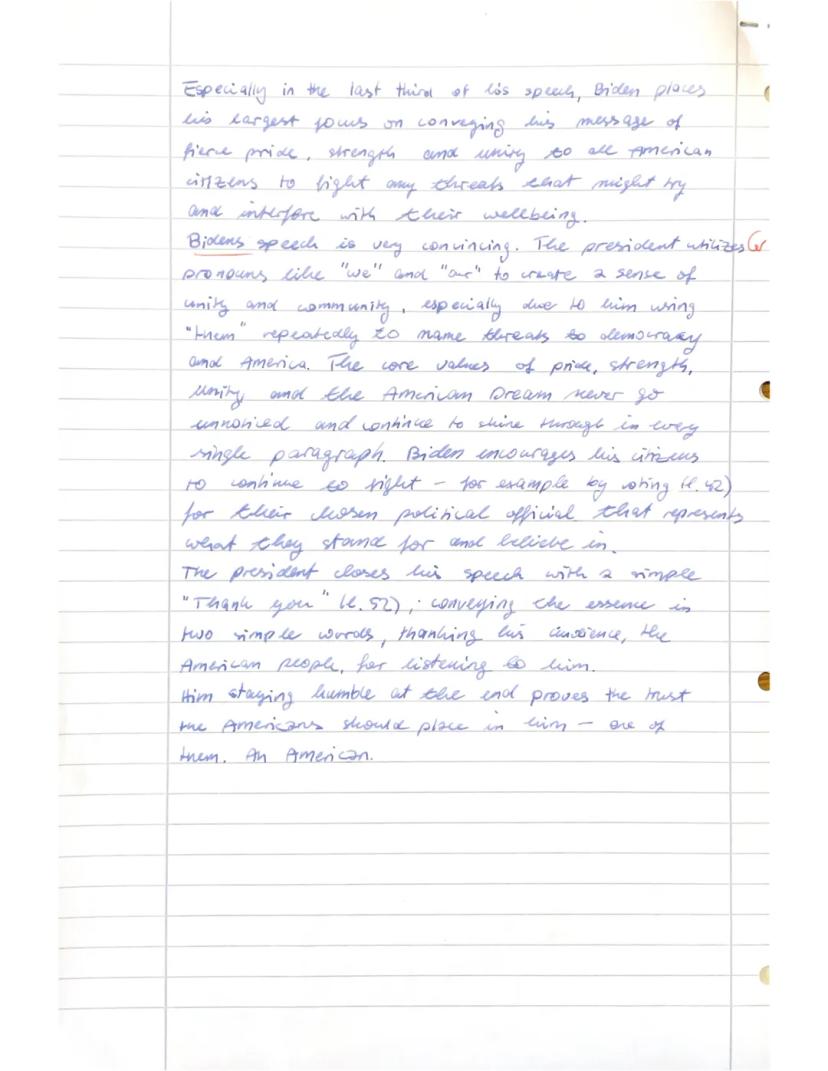 Especially in the last third of his speech, Biden places
his largest focus on conveying his message of
fierce pride, strength and unity to all American
citizens to fight any threats that might try
and interfere with their wellbeing.
Bidens speech is very convincing. The president utilizes
pronouns like "we" and "our" to create a sense of
unity and community, especially due to him using
"them" repeatedly to name threats to democracy
and America. The core values of pride, strength,
unity and the American Dream never go
unnoticed and continue to shine through in every
single paragraph. Biden encourages his citizens
to continue to fight – for example by voting (l. 42)
for their chosen political official that represents
what they stand for and believe in.
The president closes his speech with a simple
"Thank you" (l. 52), conveying the essence in
two simple words, thanking his audience, the
American people, for listening to him.
Him staying humble at the end proves the trust
the Americans should place in him – one of
them. An American.